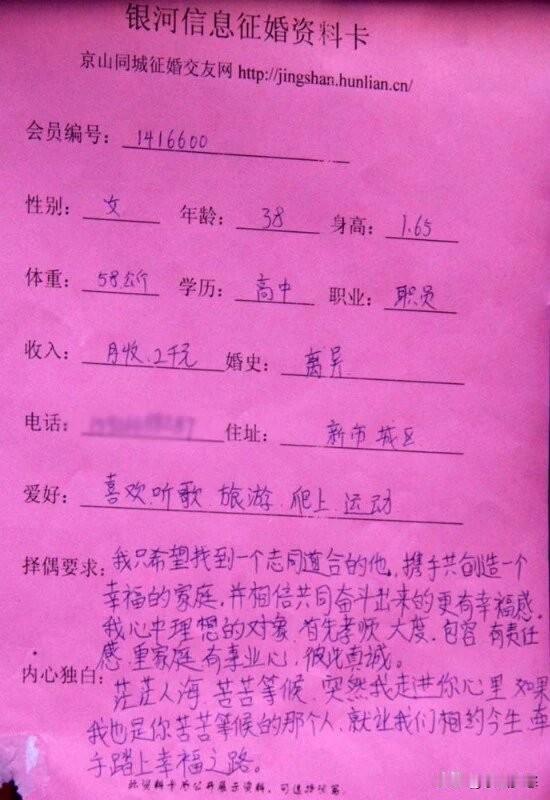 银河信息征婚资料卡
京山同城征婚交友网 http://jingshan.hunlian.cn/
会员编号: 1416600
性别: 女 年龄: 38 身高: 1.65
体重: 58公斤 学历: 高中 职业: 职员
收入: 月收.2千元 婚史: 离异
电话: 住址: 新市城区
爱好: 喜欢.听歌.旅游.爬上.运动
择偶要求: 我只希望找到一个志同道合的他,携手共创造一个
幸福的家庭.并相信共同奋斗出来的更有幸福感.
我心中理想的对象.首先孝顺.大度.包容.有责任
感.重家庭.有事业心,彼此真诚。
内心独白: 茫茫人海.苦苦等候.突然我走进你心里.如果
我也是你苦苦等候的那个人.就让我们相约今生.牵
手踏上幸福之路。
此资料卡为公开展示资料,可